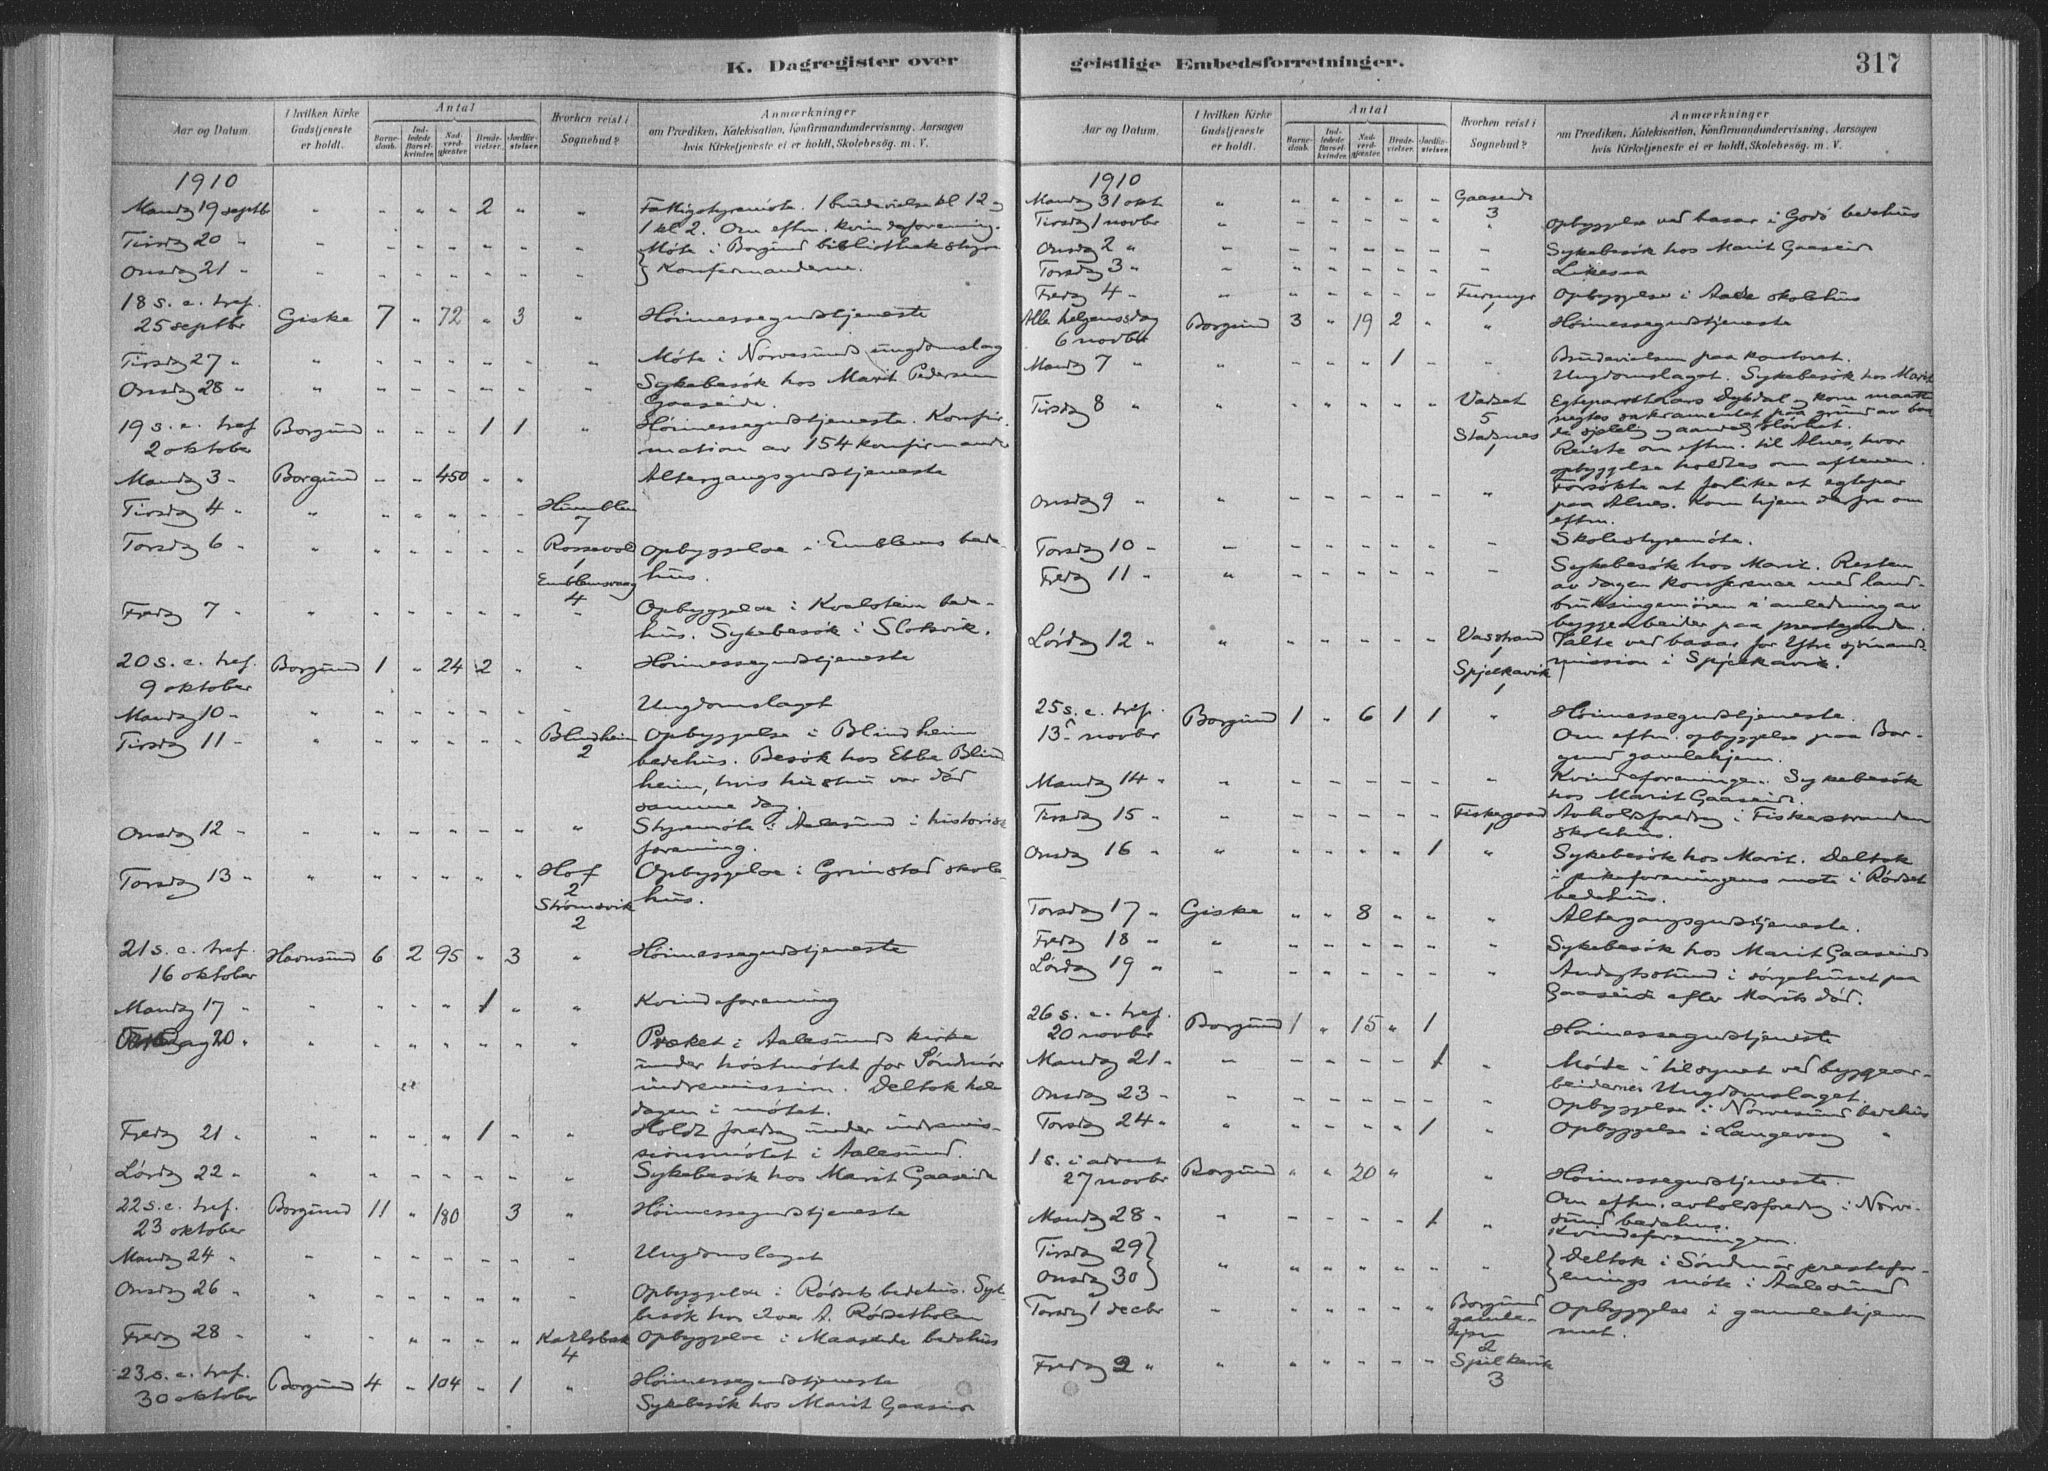 K. Dagregister over
Aar og Datum.
I hvilken Kirke Gudstjeneste er holdt.
Antal
Barne-daab.
Ind-ledede Barsel-kvinder.
Nad-verd-gjæster.
Brude-vielser.
Jordfæ-stelser.
Hvorhen reist i Sognebud?
Anmærkninger
om Prædiken, Katekisation, Konfirmandundervisning. Aarsagen
hvis Kirketjeneste ei er holdt, Skolebesög. m. V.
1910
Mandag 19 septbr " " " " 2 " " Fattigstyremöte. 1 brudevielse kl 12 og
1 kl 2. Om eftm. kvindeforening.
Tirsdag 20 " " " " " " " " Möte i Borgund bibliothekstyre
Onsdag 21 " " " " " " " " } Konfirmanderne.
18 s. e. tref.
25 septbr Giske 7 " 72 " 3 " Höimessegudstjeneste
Tirsdag 27 " " " " " " " " Möte i Nörvesund ungdomslag
Onsdag 28 " " " " " " " " Sykebesök hos Marit Pedersen
Gaaseide.
19 s. e. tref
2 oktober Borgund " " " 1 1 " Höimessegudstjeneste. Konfir-
mation av 154 konfirmander
Mandag 3 " Borgund " " 450 " " Altergangsgudstjeneste
Tirsdag 4 " " " " " " " Humblen
7
Torsdag 6 " " " " " " " Rossevold Opbyggelse i Emblems bede-
1 hus.
Emblemsvaag
4
Fredag 7 " " " " " " " " Opbyggelse i Kvalstein bede-
hus. Sykebesök i Slotsvik.
20 s. e. tref.
9 oktober Borgund 1 " 24 2 " " Höimessegudstjeneste
Mandag 10 " " " " " " " " Ungdomslaget
Tirsdag 11 " " " " " " " Blindheim Opbyggelse i Blindheim
2 bedehus. Besök hos Ebbe Blind
heim, hvis hustru var död
samme dag.
Onsdag 12 " " " " " " " " Styremöte i Aalesund i historisk
forening.
Torsdag 13 " " " " " " " Hof Opbyggelse i Grimstad skole-
2 hus.
Strömsvik
2
21 s. e. tref.
16 oktober Havnsund 6 2 95 " 3 " Höimessegudstjeneste
Mandag 17 " " " " " 1 " " Kvindeforening
20 " " " " " " " " Præket i Aalesunds kirke
under höstmötet for Söndmör
indremission. Deltok hele
dagen i mötet.
Fredag 21 " " " " " 1 " " Holdt foredrag under indremis-
sionsmötet i Aalesund.
Lördag 22 " " " " " " " " Sykebesök hos Marit Gaaseide
22 s. e. tref.
23 oktober Borgund 11 " 180 " 3 " Höimessegudstjeneste
Mandag 24 " " " " " " " " Ungdomslaget
Onsdag 26 " " " " " " " " Opbyggelse i Rödsets bedehus. Syke
besök hos Iver A. Rödsetholen
Fredag 28 " " " " " " " Karlsbak Opbyggelse i bedehus
4
23 s. e. tref.
30 oktober Borgund 4 " 104 " 1 " Höimessegudstjeneste
Sykebesök hos Marit Gaaseide
geistlige Embedsforretninger.
317
Aar og Datum.
I hvilken Kirke Gudstjeneste er holdt.
Antal
Barne-daab.
Ind-ledede Barsel-kvinder.
Nad-verd-gjæster.
Brude-vielser.
Jordfæ-stelser.
Hvorhen reist i Sognebud?
Anmærkninger
om Prædiken, Katekisation, Konfirmandundervisning. Aarsagen
hvis Kirketjeneste ei er holdt, Skolebesög. m. V.
1910
Mandag 31 okt " " " " " " Gaaseide
3
Tirsdag 1 novbr " " " " " " " Opbyggelse ved basar i Godö bedehus
Onsdag 2 " " " " " " " " Sykebesök hos Marit Gaaseide
Torsdag 3 " " " " " " " " Likesaa
Fredag 4 " " " " " " " Furmyr Opbyggelse i Aase skolehus
1
Alle helgensdag
6 novbr Borgund 3 " 19 2 " " Höimessegudstjeneste
Mandag 7 " " " " " 1 " " Brudevielsen paa kontoret.
Ungdomslaget. Sykebesök hos Marit
Tirsdag 8 " " " " " " " Vadset Egteparet Lars Dybdal og kone maatte
5 negtes sakramentet paa grund av baa
Stadsnes de sjelelig og aandelig slövhet.
1 Reiste om eftm. til Alnes, hvor
opbyggelse holdtes om aftenen.
Onsdag 9 " " " " " " " " Forsökte at forlike et egtepar
paa Alnes. Kom hjem derfra om
eftm.
Torsdag 10 " " " " " " " " Skolestyremöte.
Fredag 11 " " " " " " " " Sykebesök hos Marit. Resten
av dagen konferance med land-
bruksingeniören i anledning av
byggearbeider paa prestegaarden.
Lördag 12 " " " " " " " Vasstrand Talte ved basar for Ytre sjömands-
1 mission i Spjelkavik.
Spjelkavik
1
25 s. e. tref.
13 novbr Borgund 1 " 6 1 1 " Höimessegudstjeneste.
Om eftm. opbyggelse paa Bor-
gund gamlehjem.
Mandag 14 " " " " " " " " Kvindeforeningen. Sykebesök
hos Marit Gaaseide.
Tirsdag 15 " " " " " " " Fiskergaard Avholdsforedrag i Fiskerstranden
1 skolehus.
Onsdag 16 " " " " " " 1 " Sykebesök hos Marit. Deltok
i pikeforeningens möte i Rödset
bedehus.
Torsdag 17 " Giske " " 8 " " " Altergangsgudstjeneste.
Fredag 18 " " " " " " " " Sykebesök hos Marit Gaaseide
Lördag 19 " " " " " " " " Andagtsstund i sörgehuset paa
Gaaseide efter Marits död.
26 s. e. tref.
20 novbr Borgund 1 " 15 " 1 Höimessegudstjeneste
Mandag 21 " " " " " " 1 " Möde i tilsynet ved byggear-
beiderne. Ungdomslaget.
Onsdag 23 " " " " " " " " Opbyggelse i Nörvesund bedehus
Torsdag 24 " " " " " " 1 " Opbyggelse i Langevaag "
1 s. i advent
27 novbr Borgund " " 20 " " Höimessegudstjeneste.
Om eftm. avholdsforedrag i Nörve-
sund bedehus.
Mandag 28 " " " " " " 1 " Kvindeforeningen.
Tirsdag 29 }
Onsdag 30 } " " " " " " " } Deltok i Söndmör prestefor-
enings möte i Aalesund
Torsdag 1 decbr " " " " " " Borgund Opbyggelse i gamlehjem
gamle- met.
hjem
2
Fredag 2 " " " " " " " Spjelkavik
3